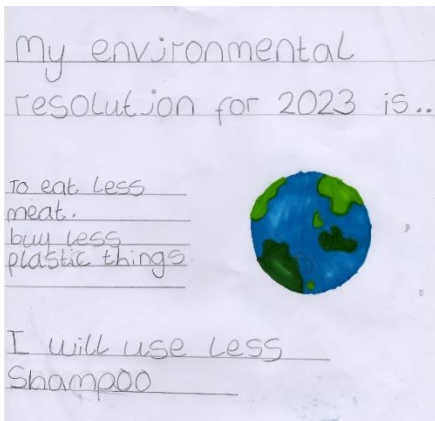 My environmental
resolution for 2023 is..
To eat less
meat.
buy less
plastic things
I will use less
Shampoo